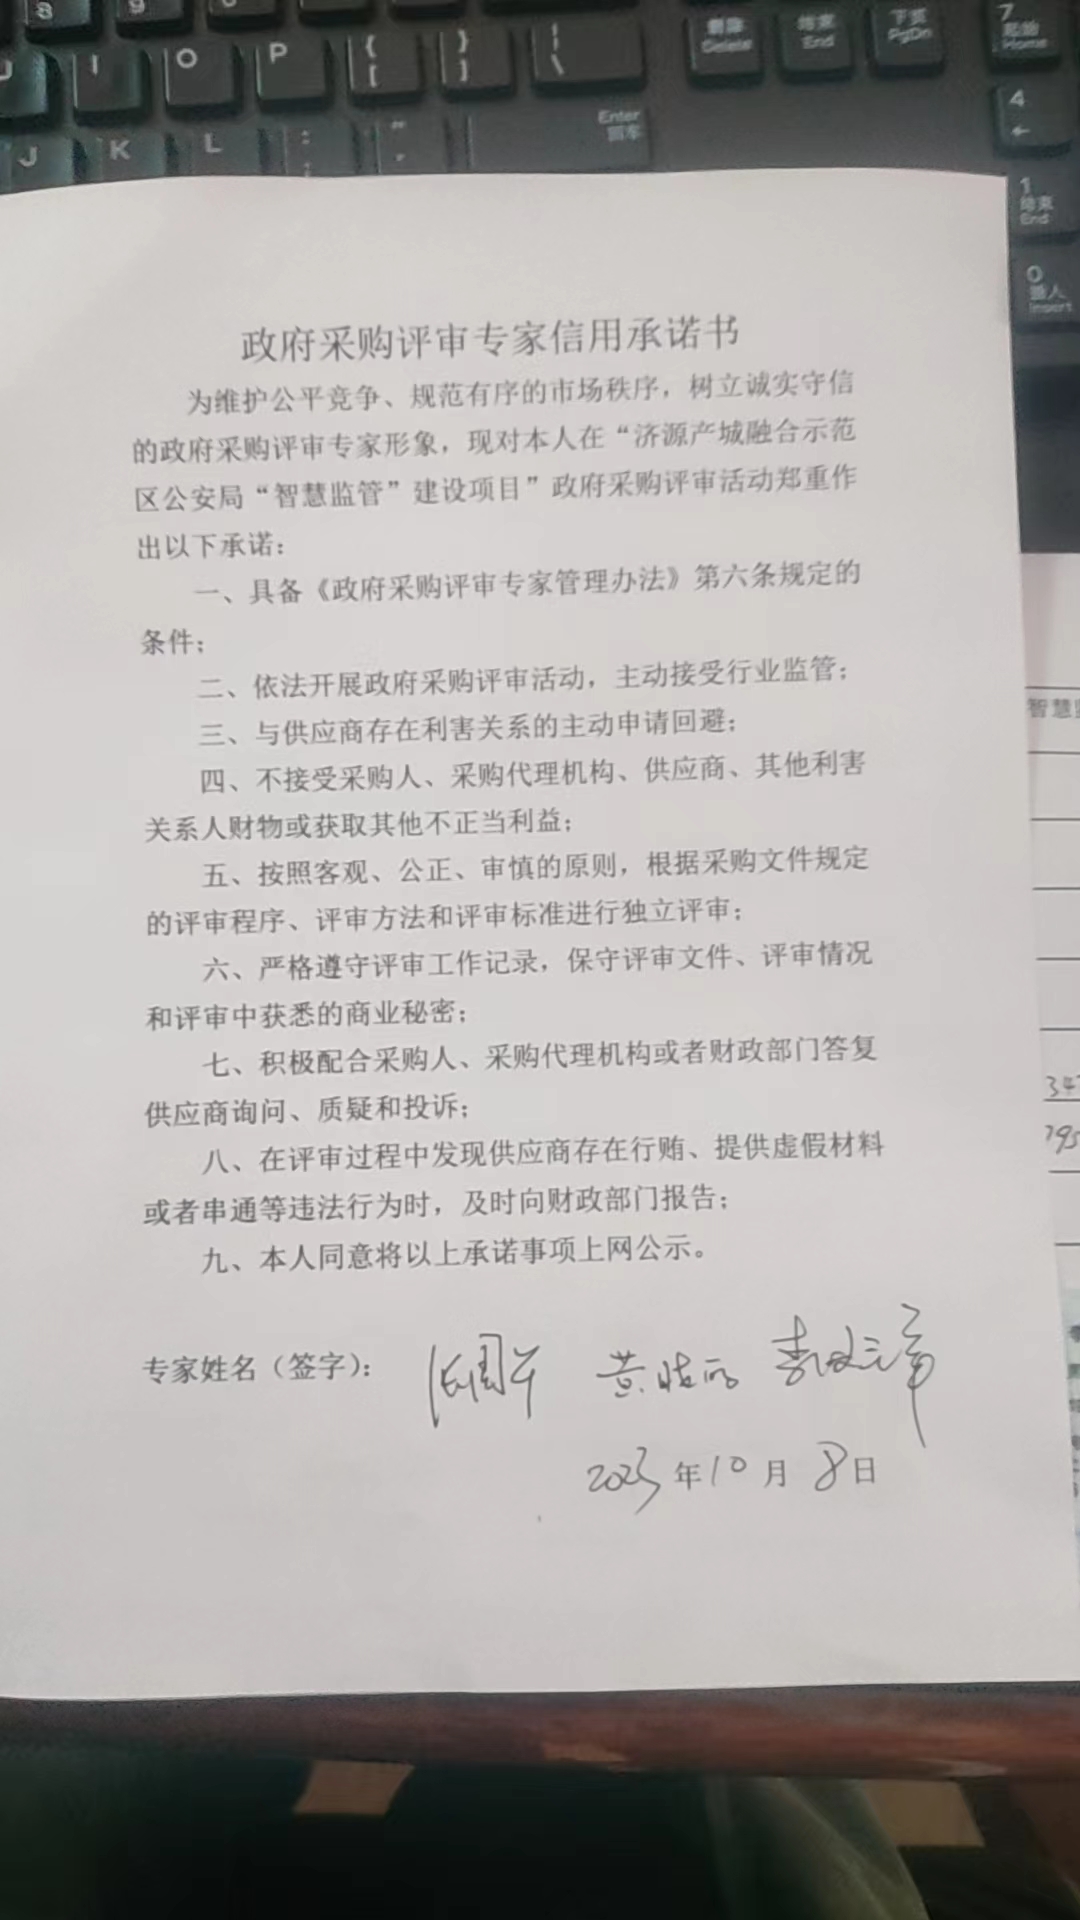 8
9
I
O
P
{
[
}
]
|
\
删除
Delete
结束
End
下页
PgDn
7
起始
Home
J
K
L
:
;
"
,
Enter
回车
4
←
1
结束
End
0
插入
Insert
政府采购评审专家信用承诺书
为维护公平竞争、规范有序的市场秩序，树立诚实守信
的政府采购评审专家形象，现对本人在“济源产城融合示范
区公安局“智慧监管”建设项目”政府采购评审活动郑重作
出以下承诺：
一、具备《政府采购评审专家管理办法》第六条规定的
条件；
二、依法开展政府采购评审活动，主动接受行业监管；
三、与供应商存在利害关系的主动申请回避；
四、不接受采购人、采购代理机构、供应商、其他利害
关系人财物或获取其他不正当利益；
五、按照客观、公正、审慎的原则，根据采购文件规定
的评审程序、评审方法和评审标准进行独立评审；
六、严格遵守评审工作记录，保守评审文件、评审情况
和评审中获悉的商业秘密；
七、积极配合采购人、采购代理机构或者财政部门答复
供应商询问、质疑和投诉；
八、在评审过程中发现供应商存在行贿、提供虚假材料
或者串通等违法行为时，及时向财政部门报告；
九、本人同意将以上承诺事项上网公示。
专家姓名（签字）：
2023年10月8日
智慧